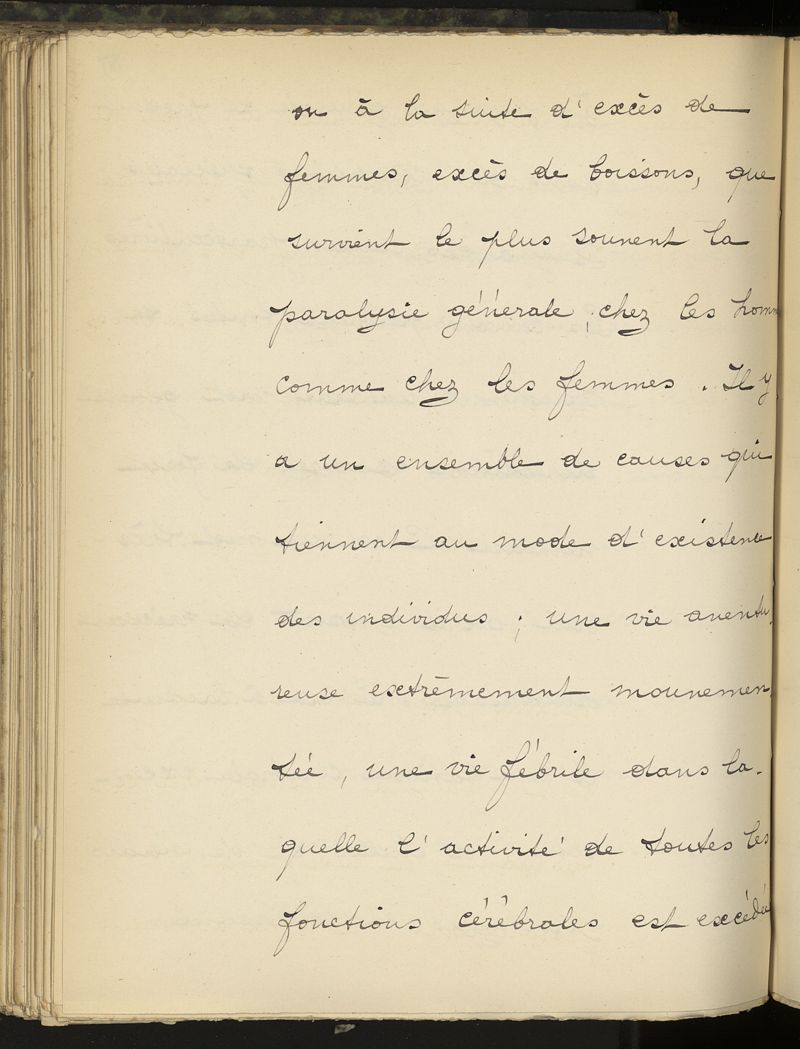 ou à la suite d'excès de
femmes, excès de boissons, que
survient le plus souvent la
paralysie générale, chez les homm
comme chez les femmes. Il y
a un ensemble de causes qui
tiennent au mode d'existence
des individus ; une vie aventu
reuse extrèmement mouvemen
tée, une vie fébrile dans la-
quelle l'activité de toutes les
fonctions cérébrales est excédée